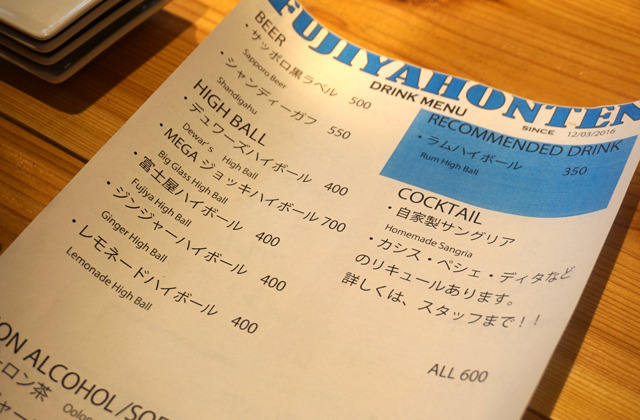 FUJIYAHONTEN
DRINK MENU
SINCE 12/03/2016
BEER
・サッポロ黒ラベル 500
Sapporo Beer
・シャンディーガフ 550
Shandigahu
HIGH BALL
・デュワーズハイボール 400
Dewar's High Ball
・MEGA ジョッキハイボール 700
Big Glass High Ball
・富士屋ハイボール 400
Fujiya High Ball
・ジンジャーハイボール 400
Ginger High Ball
・レモネードハイボール 400
Lemonade High Ball
RECOMMENDED DRINK
・ラムハイボール 350
Rum High Ball
COCKTAIL
・自家製サングリア
Homemade Sangria
・カシス・ペシェ・ディタなど
のリキュールあります。
詳しくは、スタッフまで！！
ALL 600
ON ALCOHOL/SOF
ーロン茶
Oolon